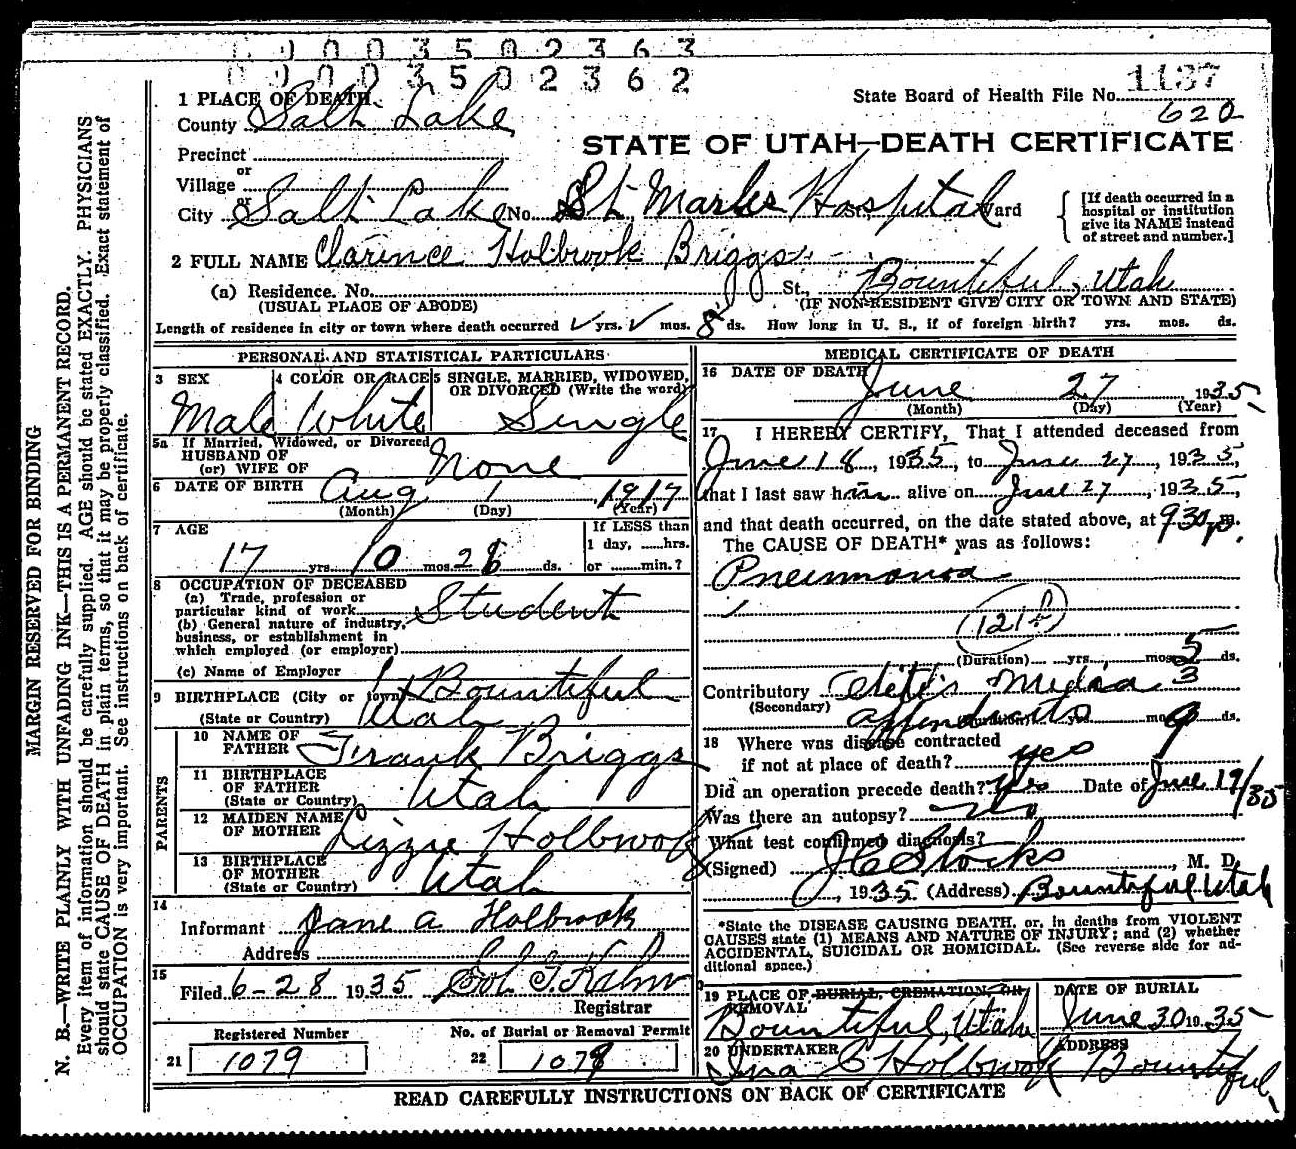 0 0 0 0 3 5 0 2 3 6 3
0 0 0 0 3 5 0 2 3 6 2
1137
State Board of Health File No.
620
STATE OF UTAH—DEATH CERTIFICATE
1 PLACE OF DEATH
County Salt Lake
Precinct
or
Village
or
City Salt Lake No. St. Marks Hospital St. Ward
[If death occurred in a
hospital or institution
give its NAME instead
of street and number.]
2 FULL NAME Clarence Holbrook Briggs
(a) Residence. No. St., Bountiful, Utah
(USUAL PLACE OF ABODE) (IF NON-RESIDENT GIVE CITY OR TOWN AND STATE)
Length of residence in city or town where death occurred yrs. mos. 8 ds. How long in U. S., if of foreign birth? yrs. mos. ds.
PERSONAL AND STATISTICAL PARTICULARS
3 SEX
Male
4 COLOR OR RACE
White
5 SINGLE, MARRIED, WIDOWED,
OR DIVORCED (Write the word)
Single
5a If Married, Widowed, or Divorced
HUSBAND OF
(or) WIFE OF None
6 DATE OF BIRTH Aug 1 1917
(Month) (Day) (Year)
7 AGE
17 yrs. 10 mos. 26 ds.
If LESS than
1 day, ......hrs.
or .......min.?
8 OCCUPATION OF DECEASED
(a) Trade, profession or
particular kind of work Student
(b) General nature of industry,
business, or establishment in
which employed (or employer)
(c) Name of Employer
9 BIRTHPLACE (City or town) Bountiful
(State or Country) Utah
PARENTS
10 NAME OF
FATHER Frank Briggs
11 BIRTHPLACE
OF FATHER
(State or Country) Utah
12 MAIDEN NAME
OF MOTHER Lizzie Holbrook
13 BIRTHPLACE
OF MOTHER
(State or Country) Utah
14
Informant Jane A Holbrook
Address
15
Filed 6-28 1935 Sol. G. Kahn
Registrar
Registered Number
21 1079
No. of Burial or Removal Permit
22 1078
MEDICAL CERTIFICATE OF DEATH
16 DATE OF DEATH June 27 1935
(Month) (Day) (Year)
17 I HEREBY CERTIFY, That I attended deceased from
June 18, 1935, to June 27, 1935,
that I last saw him alive on June 27, 1935,
and that death occurred, on the date stated above, at 930 p. m.
The CAUSE OF DEATH* was as follows:
Pneumonia
121
(Duration) yrs. mos. 5 ds.
Contributory Otitis Media 3
(Secondary)
Appendicitis (Duration) yrs. mos. 9 ds.
18 Where was disease contracted
if not at place of death? yes
Did an operation precede death? Yes Date of June 19/35
Was there an autopsy? No
What test confirmed diagnosis?
(Signed) J C Stocks, M. D.
, 1935 (Address) Bountiful Utah
*State the DISEASE CAUSING DEATH, or, in deaths from VIOLENT
CAUSES state (1) MEANS AND NATURE OF INJURY; and (2) whether
ACCIDENTAL, SUICIDAL OR HOMICIDAL. (See reverse side for ad-
ditional space.)
19 PLACE OF BURIAL, CREMATION, OR
REMOVAL
Bountiful, Utah
DATE OF BURIAL
June 30 1935
20 UNDERTAKER ADDRESS
C Holbrook Bountiful
READ CAREFULLY INSTRUCTIONS ON BACK OF CERTIFICATE
MARGIN RESERVED FOR BINDING
N. B.—WRITE PLAINLY WITH UNFADING INK—THIS IS A PERMANENT RECORD.
Every item of information should be carefully supplied. AGE should be stated EXACTLY. PHYSICIANS
should state CAUSE OF DEATH in plain terms, so that it may be properly classified. Exact statement of
OCCUPATION is very important. See instructions on back of certificate.